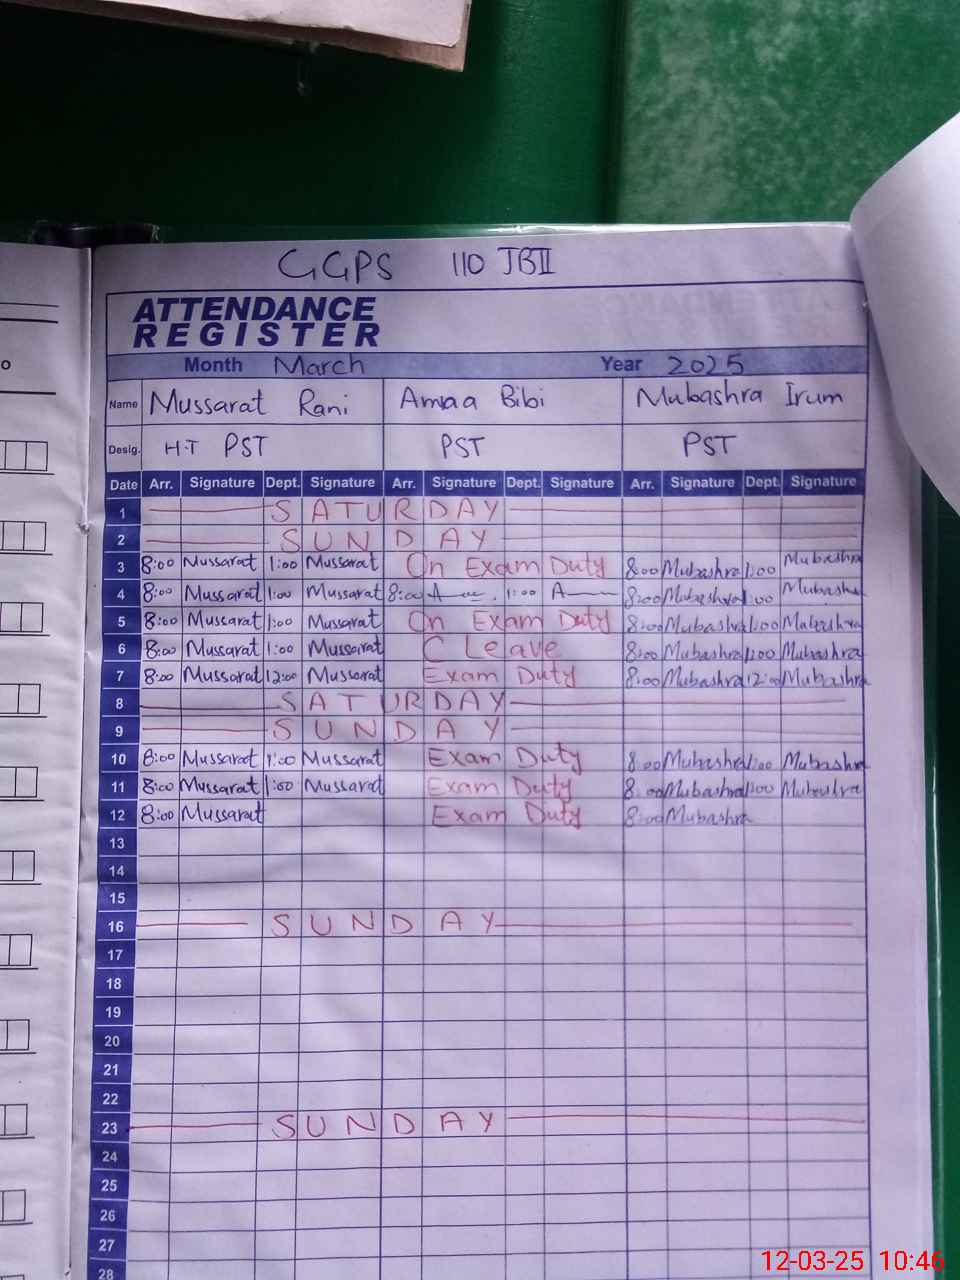 GGPS 110 JB II
ATTENDANCE
REGISTER
Month March Year 2025
Name Mussarat Rani Amaa Bibi Mubashra Irum
Desig. H·T PST PST PST
Date Arr. Signature Dept. Signature Arr. Signature Dept. Signature Arr. Signature Dept. Signature
1 SATURDAY
2 SUNDAY
3 8:00 Mussarat 1:00 Mussarat On Exam Duty 8:00 Mubashra 1:00 Mubashra
4 8:00 Mussarat 1:00 Mussarat 8:00 A 1:00 A 8:00 Mubashra 1:00 Mubashra
5 8:00 Mussarat 1:00 Mussarat On Exam Duty 8:00 Mubashra 1:00 Mubashra
6 8:00 Mussarat 1:00 Mussarat C Leave 8:00 Mubashra 1:00 Mubashra
7 8:00 Mussarat 12:00 Mussarat Exam Duty 8:00 Mubashra 12:00 Mubashra
8 SATURDAY
9 SUNDAY
10 8:00 Mussarat 1:00 Mussarat Exam Duty 8:00 Mubashra 1:00 Mubashra
11 8:00 Mussarat 1:00 Mussarat Exam Duty 8:00 Mubashra 1:00 Mubashra
12 8:00 Mussarat Exam Duty 8:00 Mubashra
13
14
15
16 SUNDAY
17
18
19
20
21
22
23 SUNDAY
24
25
26
27
28
12-03-25 10:46